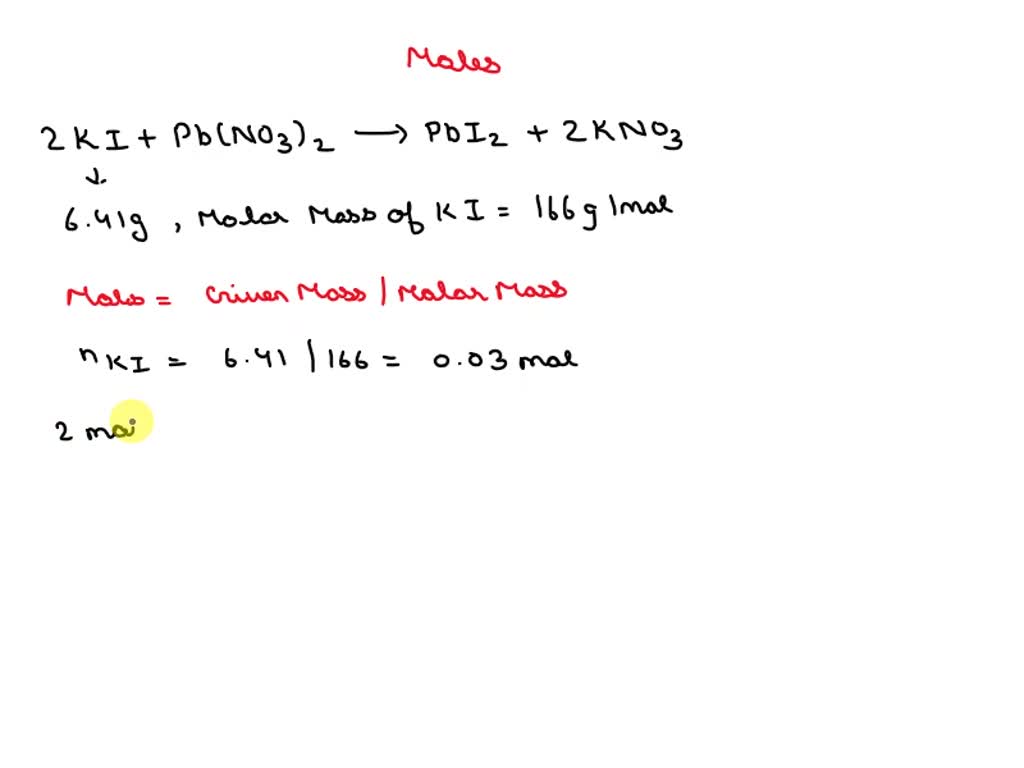 Moles
2KI + Pb(NO₃)₂ → PbI₂ + 2KNO₃
↓
6.41g, Molar Mass of KI = 166g/mol
Moles = Given Mass / Molar Mass
nKI = 6.41 / 166 = 0.03 mol
2 mol